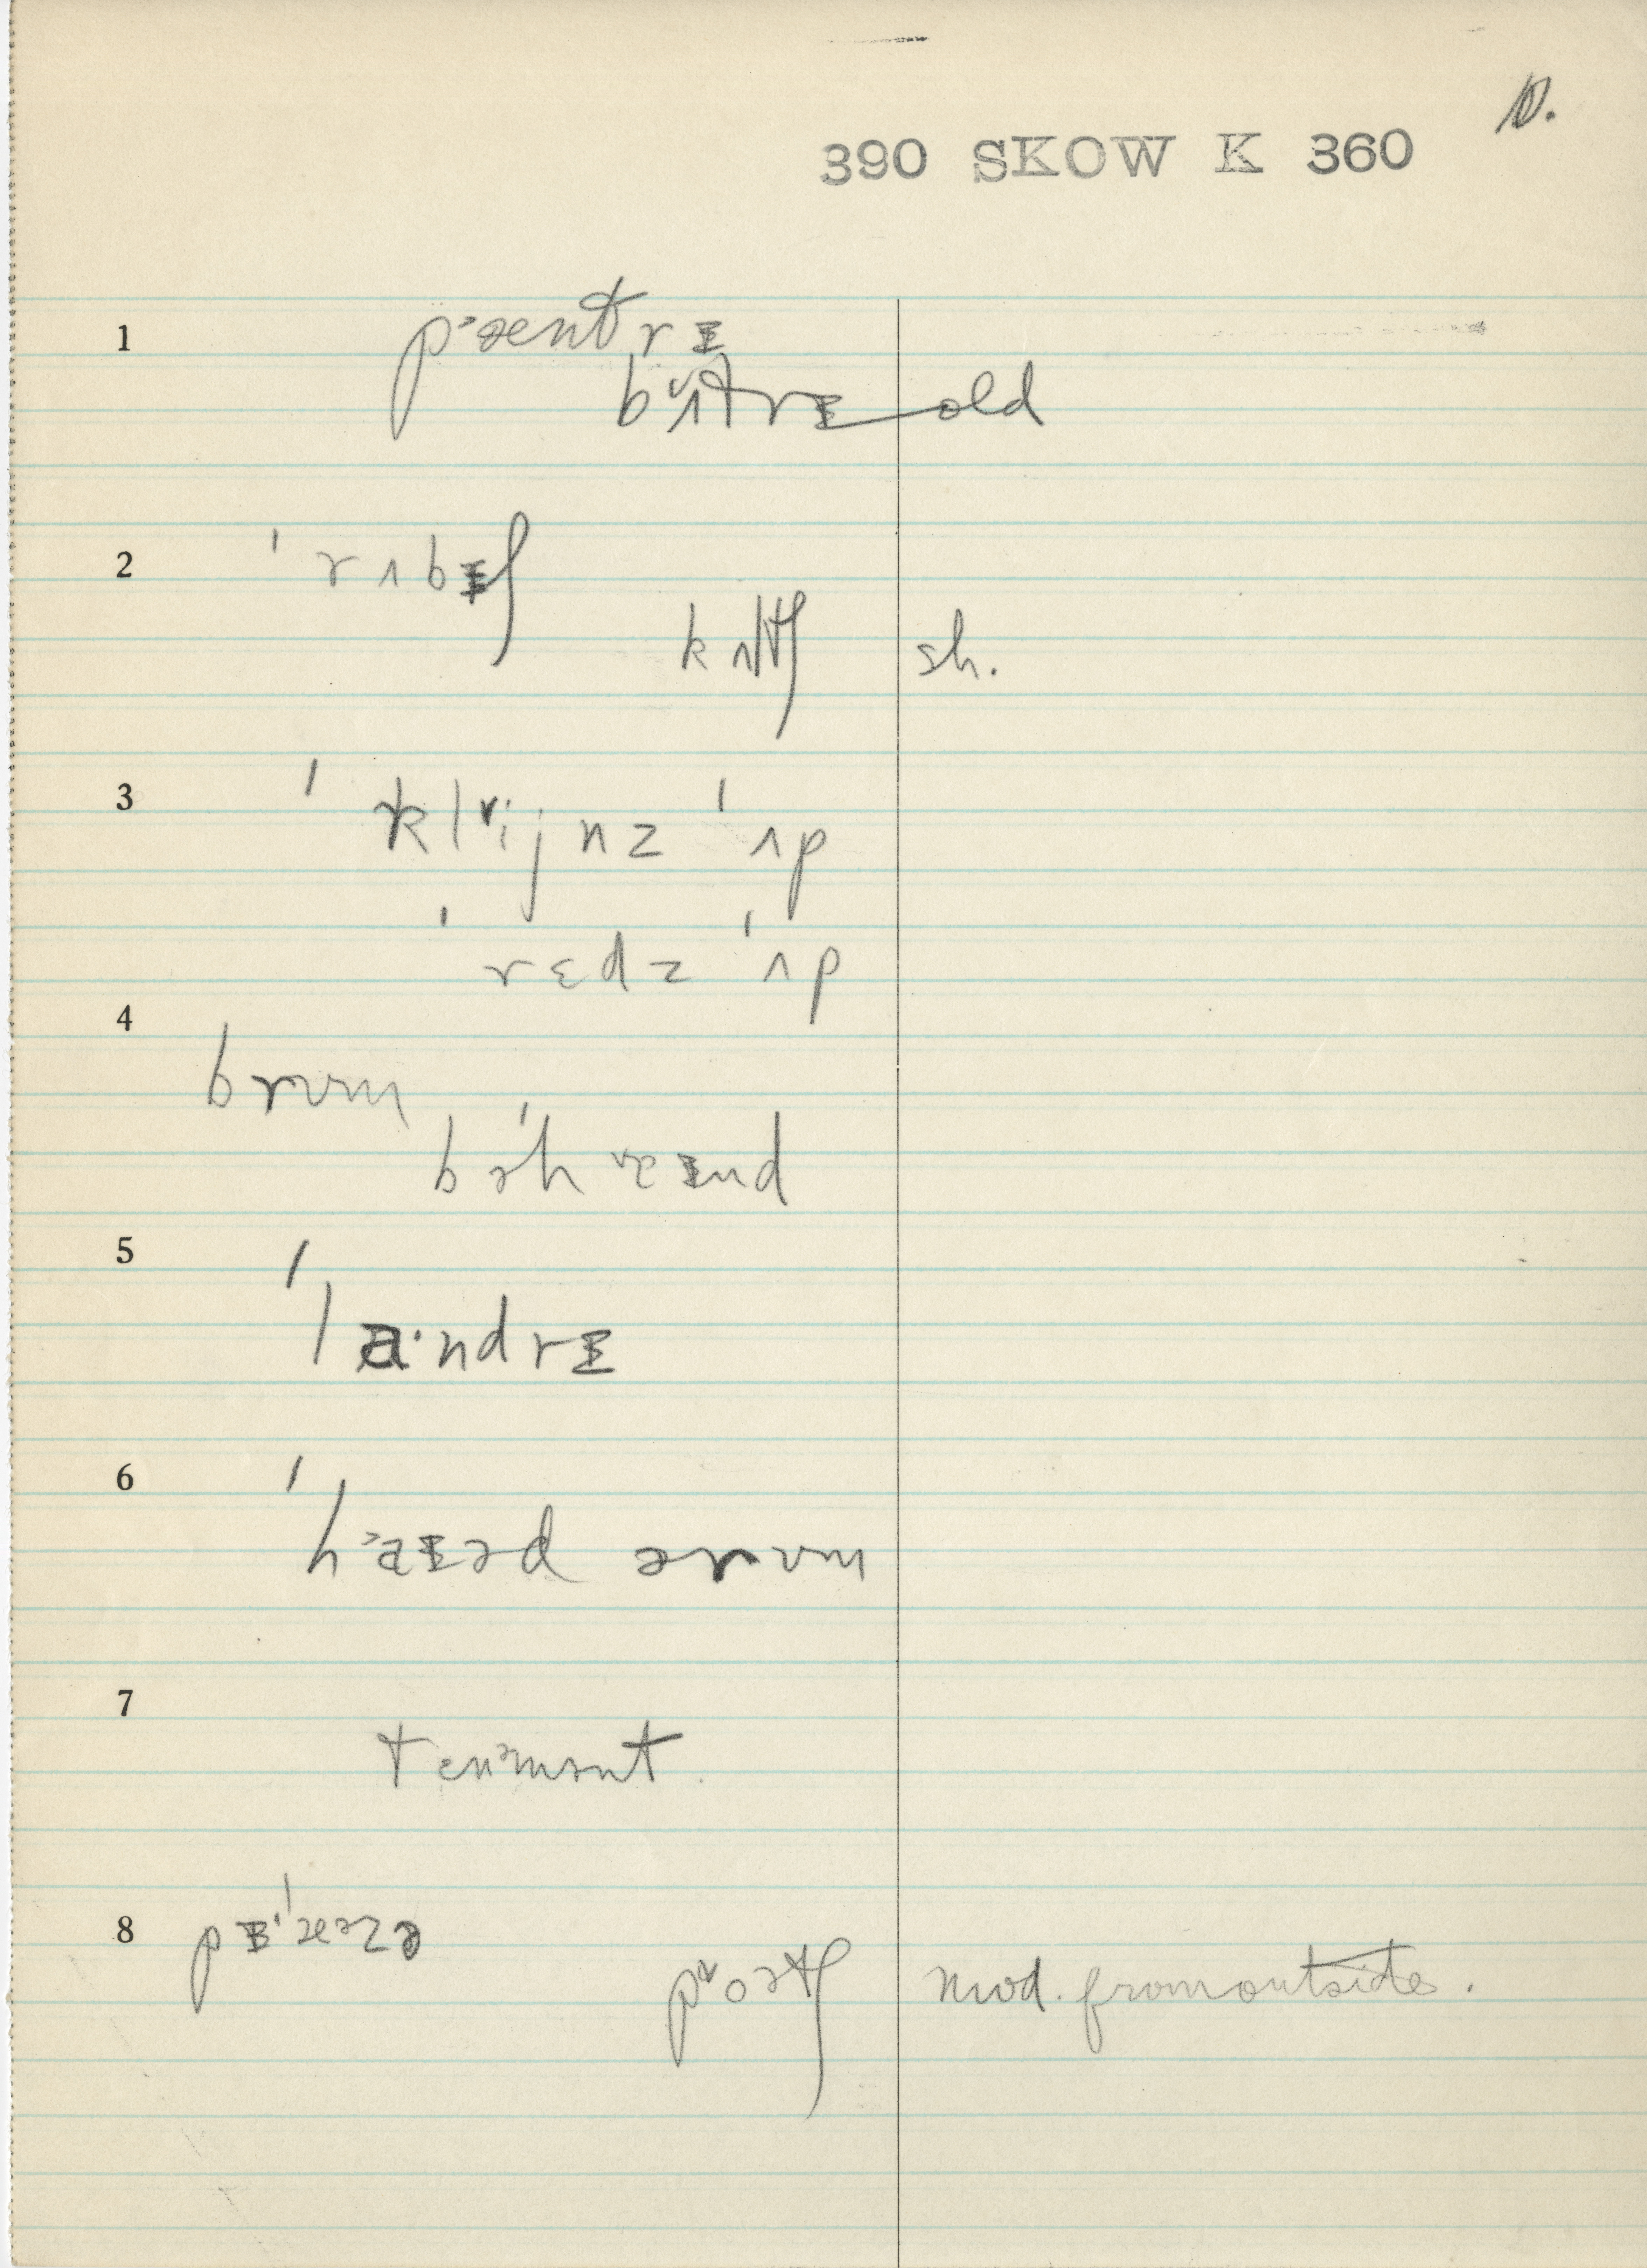 10.
390 SKOW K 360
1 pᵊæntrɪ
bʌtrɪ old
2 ˈrʌbɪʃ
kʌltʃ sh.
3 ˈklɪˇijnz ˈʌp
ˈrɛdz ˈʌp
4 brʊm
bəˈhɐɪnd
5 ˈlɑ·ndrɪ
6 ˈhaɪəd ərʊm
7 tenəmənt
8 pɪˈæəzə
poətʃ mod. from outside.